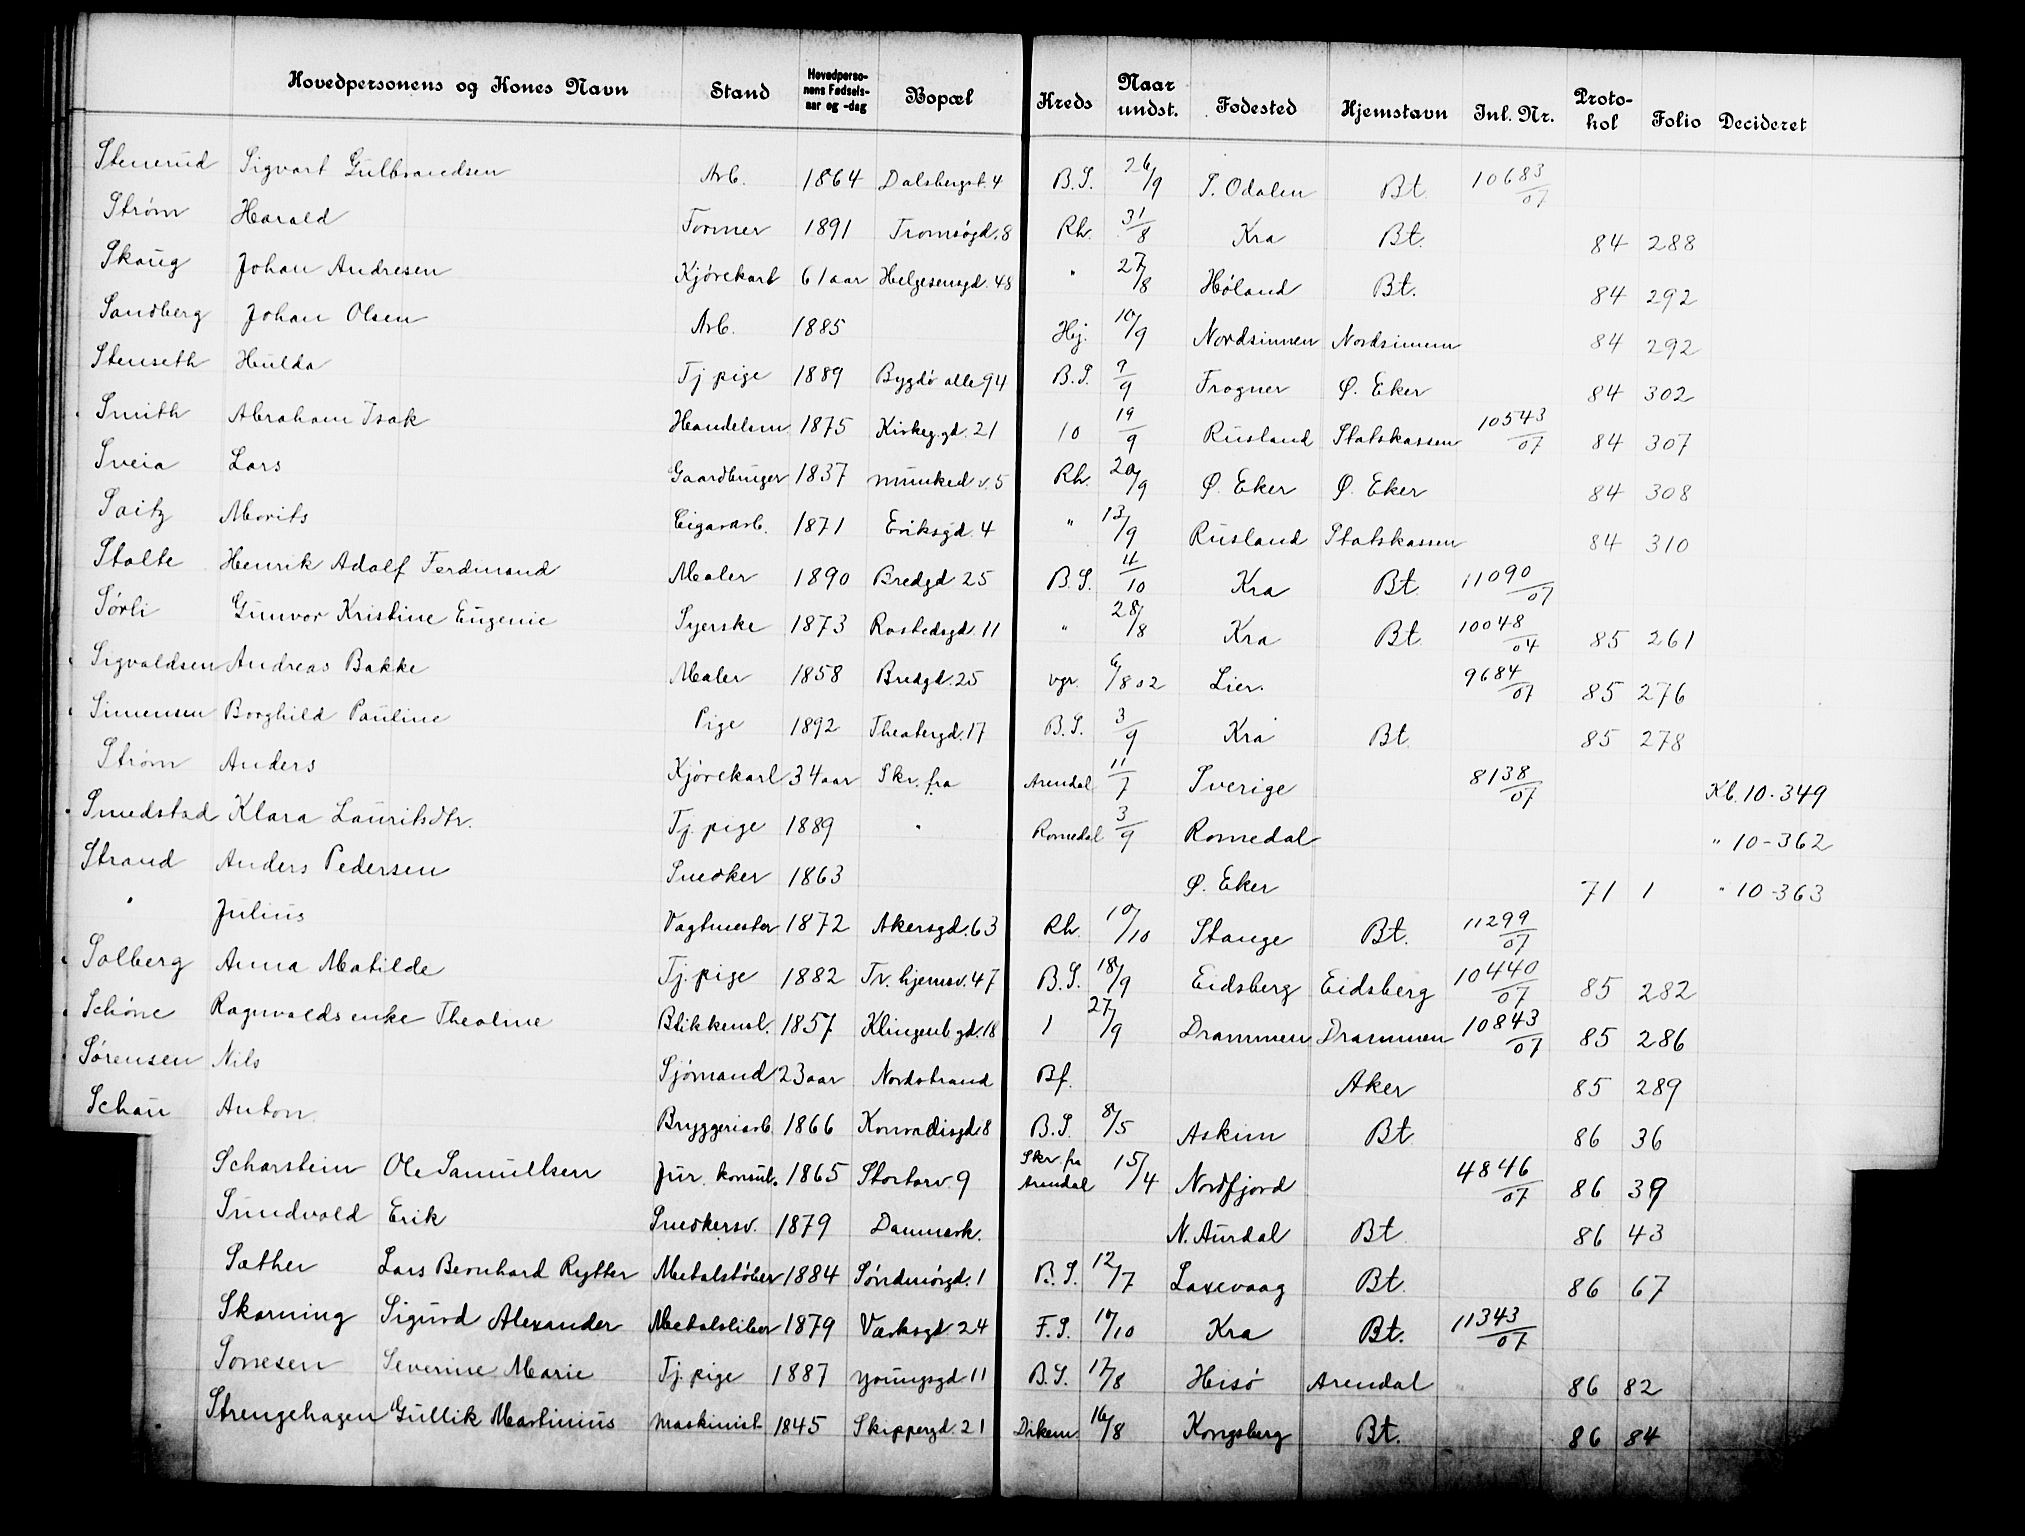 Hovedpersonens og Kones Navn Stand Hovedperso-nens Fødsels-aar og -dag Bopæl Kreds Naar undst. Fødested Hjemstavn Inl. Nr. Proto-kol Folio Decideret
Stenerud Sigvart Gulbrandsen Arb. 1864 Dalsbergst. 4 B.S. 26/9 S. Odalen Bt. 10683/07
Strøm Harald Former 1891 Tromsøgd. 8 Rh. 31/8 Kra Bt. 84 288
Skaug Johan Andresen Kjørekarl 61 aar Helgesensgd. 48 " 27/8 Høland Bt. 84 292
Sandberg Johan Olsen Arb. 1885 Hej. 10/9 Nordsinnen Nordsinnen 84 292
Stenseth Hulda Tj. pige 1889 Bygdø alle 94 B.S. 9/9 Frogner Ø. Eker 84 302
Smith Abraham Isak Handelsm. 1875 Kirkeg.gd. 21 10 19/9 Rusland Statskassen 10543/07 84 307
Sveia Lars Gaardbruger 1837 Munked.v. 5 Rh. 20/9 Ø. Eker Ø. Eker 84 308
Saitz Morits Cigararb. 1871 Eriksgd. 4 " 13/9 Rusland Statskassen 84 310
Stolte Henrik Adolf Ferdinand Maler 1890 Bredgd 25 B.S. 4/10 Kra Bt. 11090/07
Sørli Gunvor Kristine Eugenie Syerske 1873 Rostedsgd. 11 " 28/8 Kra Bt. 10048/04 85 261
Sigvaldsen Andreas Bakke Maler 1858 Bredgd. 25 vgr. 6/8 02 Lier. 9684/07 85 276
Simensen Borghild Pauline Pige 1892 Theatergd. 17 B.S. 3/9 Kra Bt. 85 278
Strøm Anders Kjørekarl 34 aar Skr. fra Arendal 11/7 Sverige 8138/07 Kb. 10-349
Smedstad Klara Lauritsdtr. Tj. pige 1889 " Romedal 3/9 Romedal " 10-362
Strand Anders Pedersen Snedker 1863 Ø. Eker 71 1 " 10-363
" Julius Vagtmester 1872 Akersgd. 63 Rh. 10/10 Stange Bt. 11299/07
Solberg Anna Matilde Tj. pige 1882 Tv. hjemsv. 47 B.S. 18/9 Eidsberg Eidsberg 10440/07 85 282
Schöne Ragnvalds enke Theoline Blikkensl. 1857 Klingenb.gd. 18 1 27/9 Drammen Drammen 10843/07 85 286
Sørensen Nils Sjømand 23 aar Nordstrand Bf. Aker 85 289
Schau Anton. Bryggeriarb. 1866 Konvallisgd. 8 B.S. 8/5 Askim Bt. 86 36
Scharstein Ole Samuelsen Jur. konsul. 1865 Stortorv. 9 Skr. fra Arendal 15/4 Nordfjord 4846/07 86 39
Sundvold Erik Snedkersv. 1879 Danmark. N. Aurdal Bt. 86 43
Sæther Lars Bernhard Rytter Metalstøber 1884 Søndmørgd. 1 B.S. 12/7 Laxevaag Bt. 86 67
Skarning Sigurd Alexander Metalsliber 1879 Værksgd 24 F.S. 10/10 Kra Bt. 11343/07
Sonesen Severine Marie Tj. pige 1887 Youngsgd 11 B.S. 17/8 Hisø Arendal 86 82
Strengehagen Gullik Martinius Maskinist 1845 Skippergd. 21 Dikem. 16/8 Kongsberg Bt. 86 84